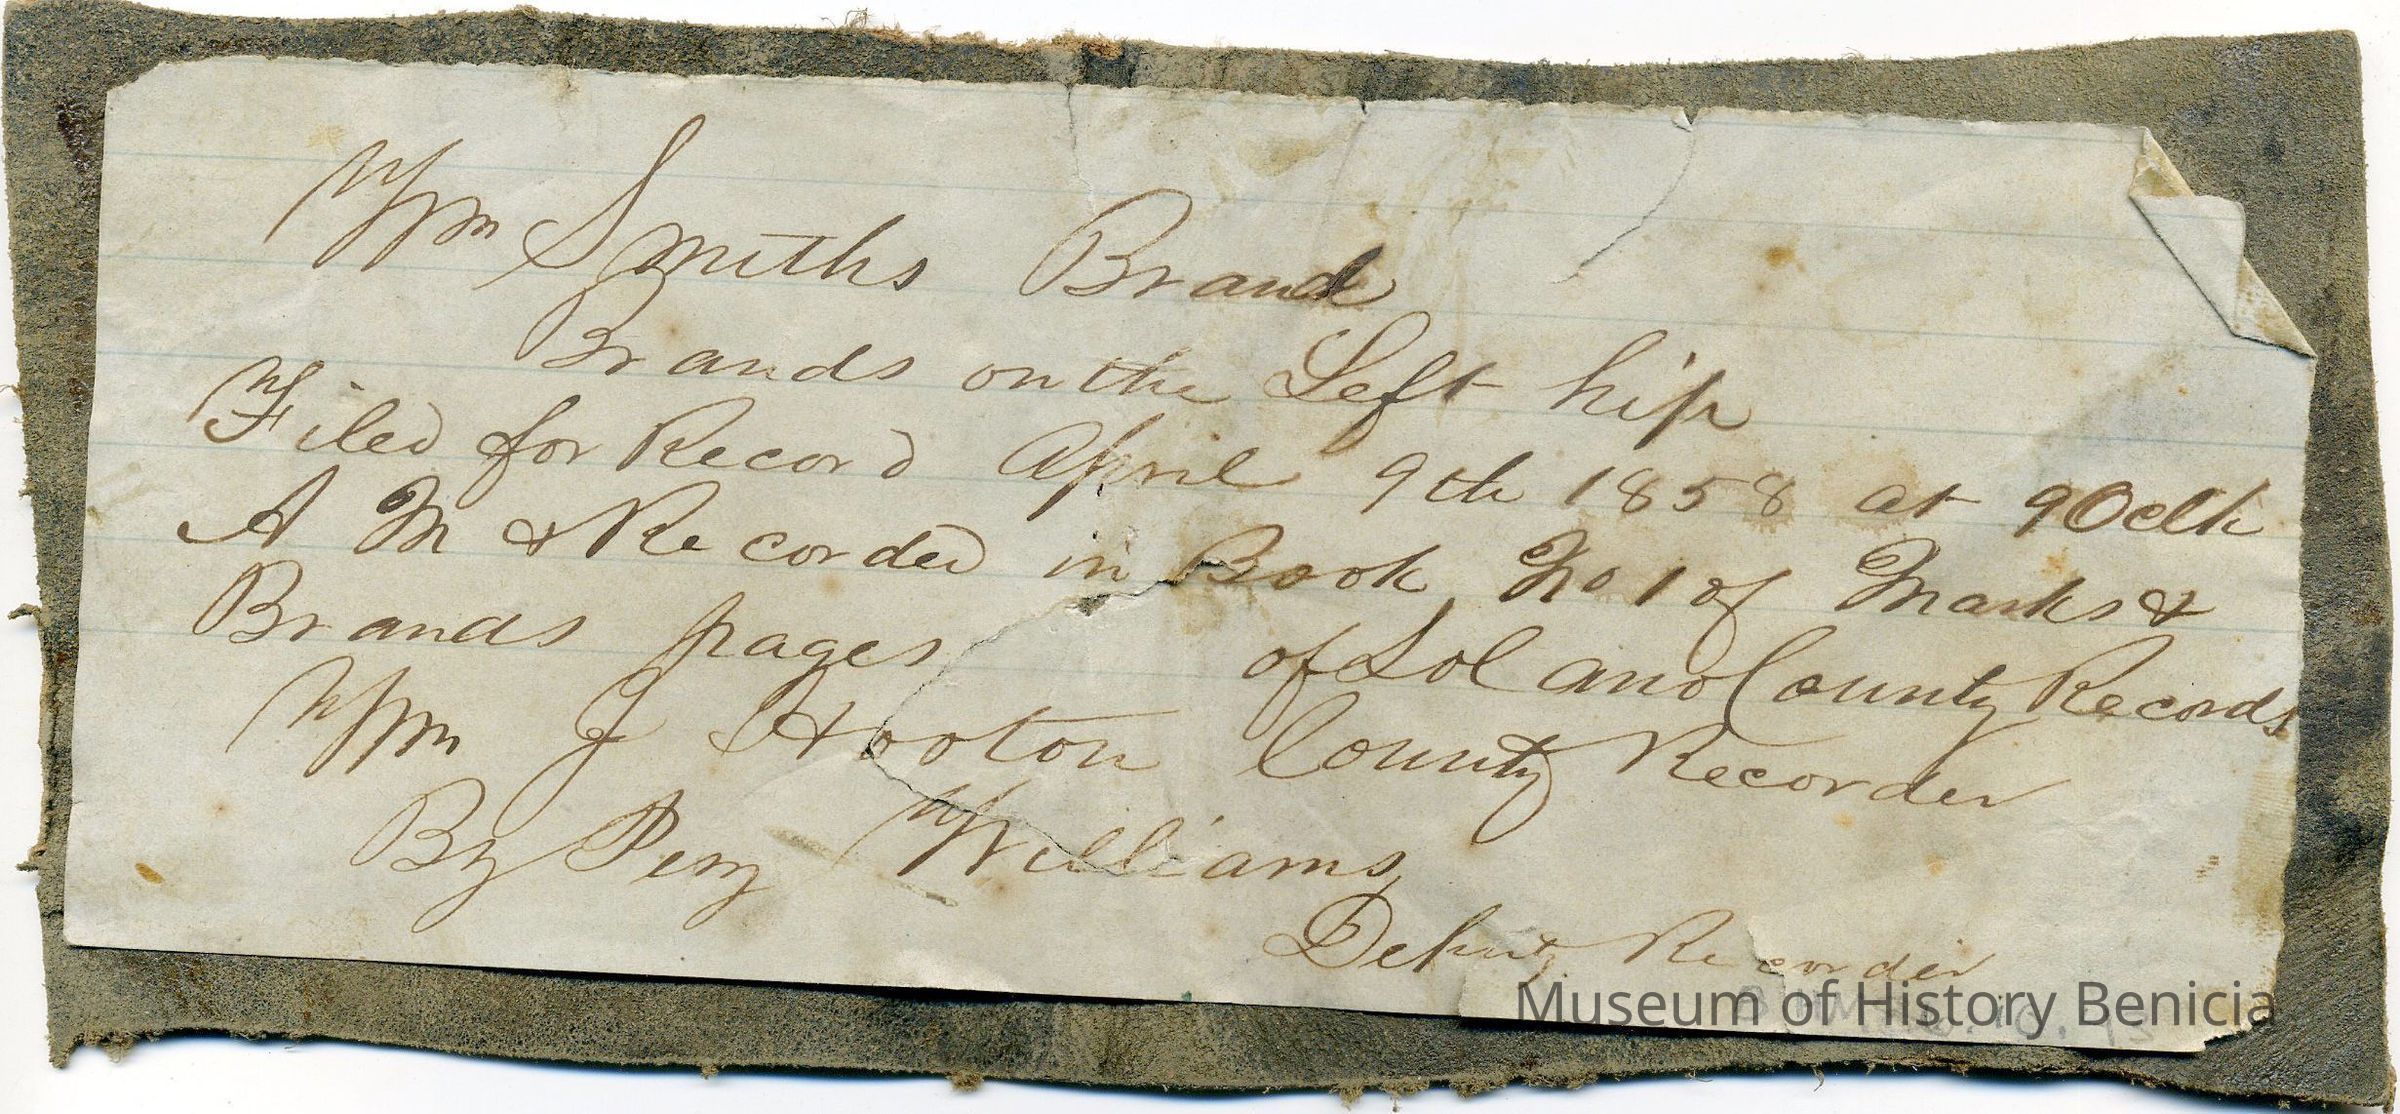 Wm Smiths Brand
Brands on the Left hip
Filed for Record April 9th 1858 at 9 Oclk
A M & Recorded in Book No 1 of Marks &
Brands pages of Solano County Records
Wm J Hooton County Recorder
By Perry Williams
Deputy Recorder
Museum of History Benicia